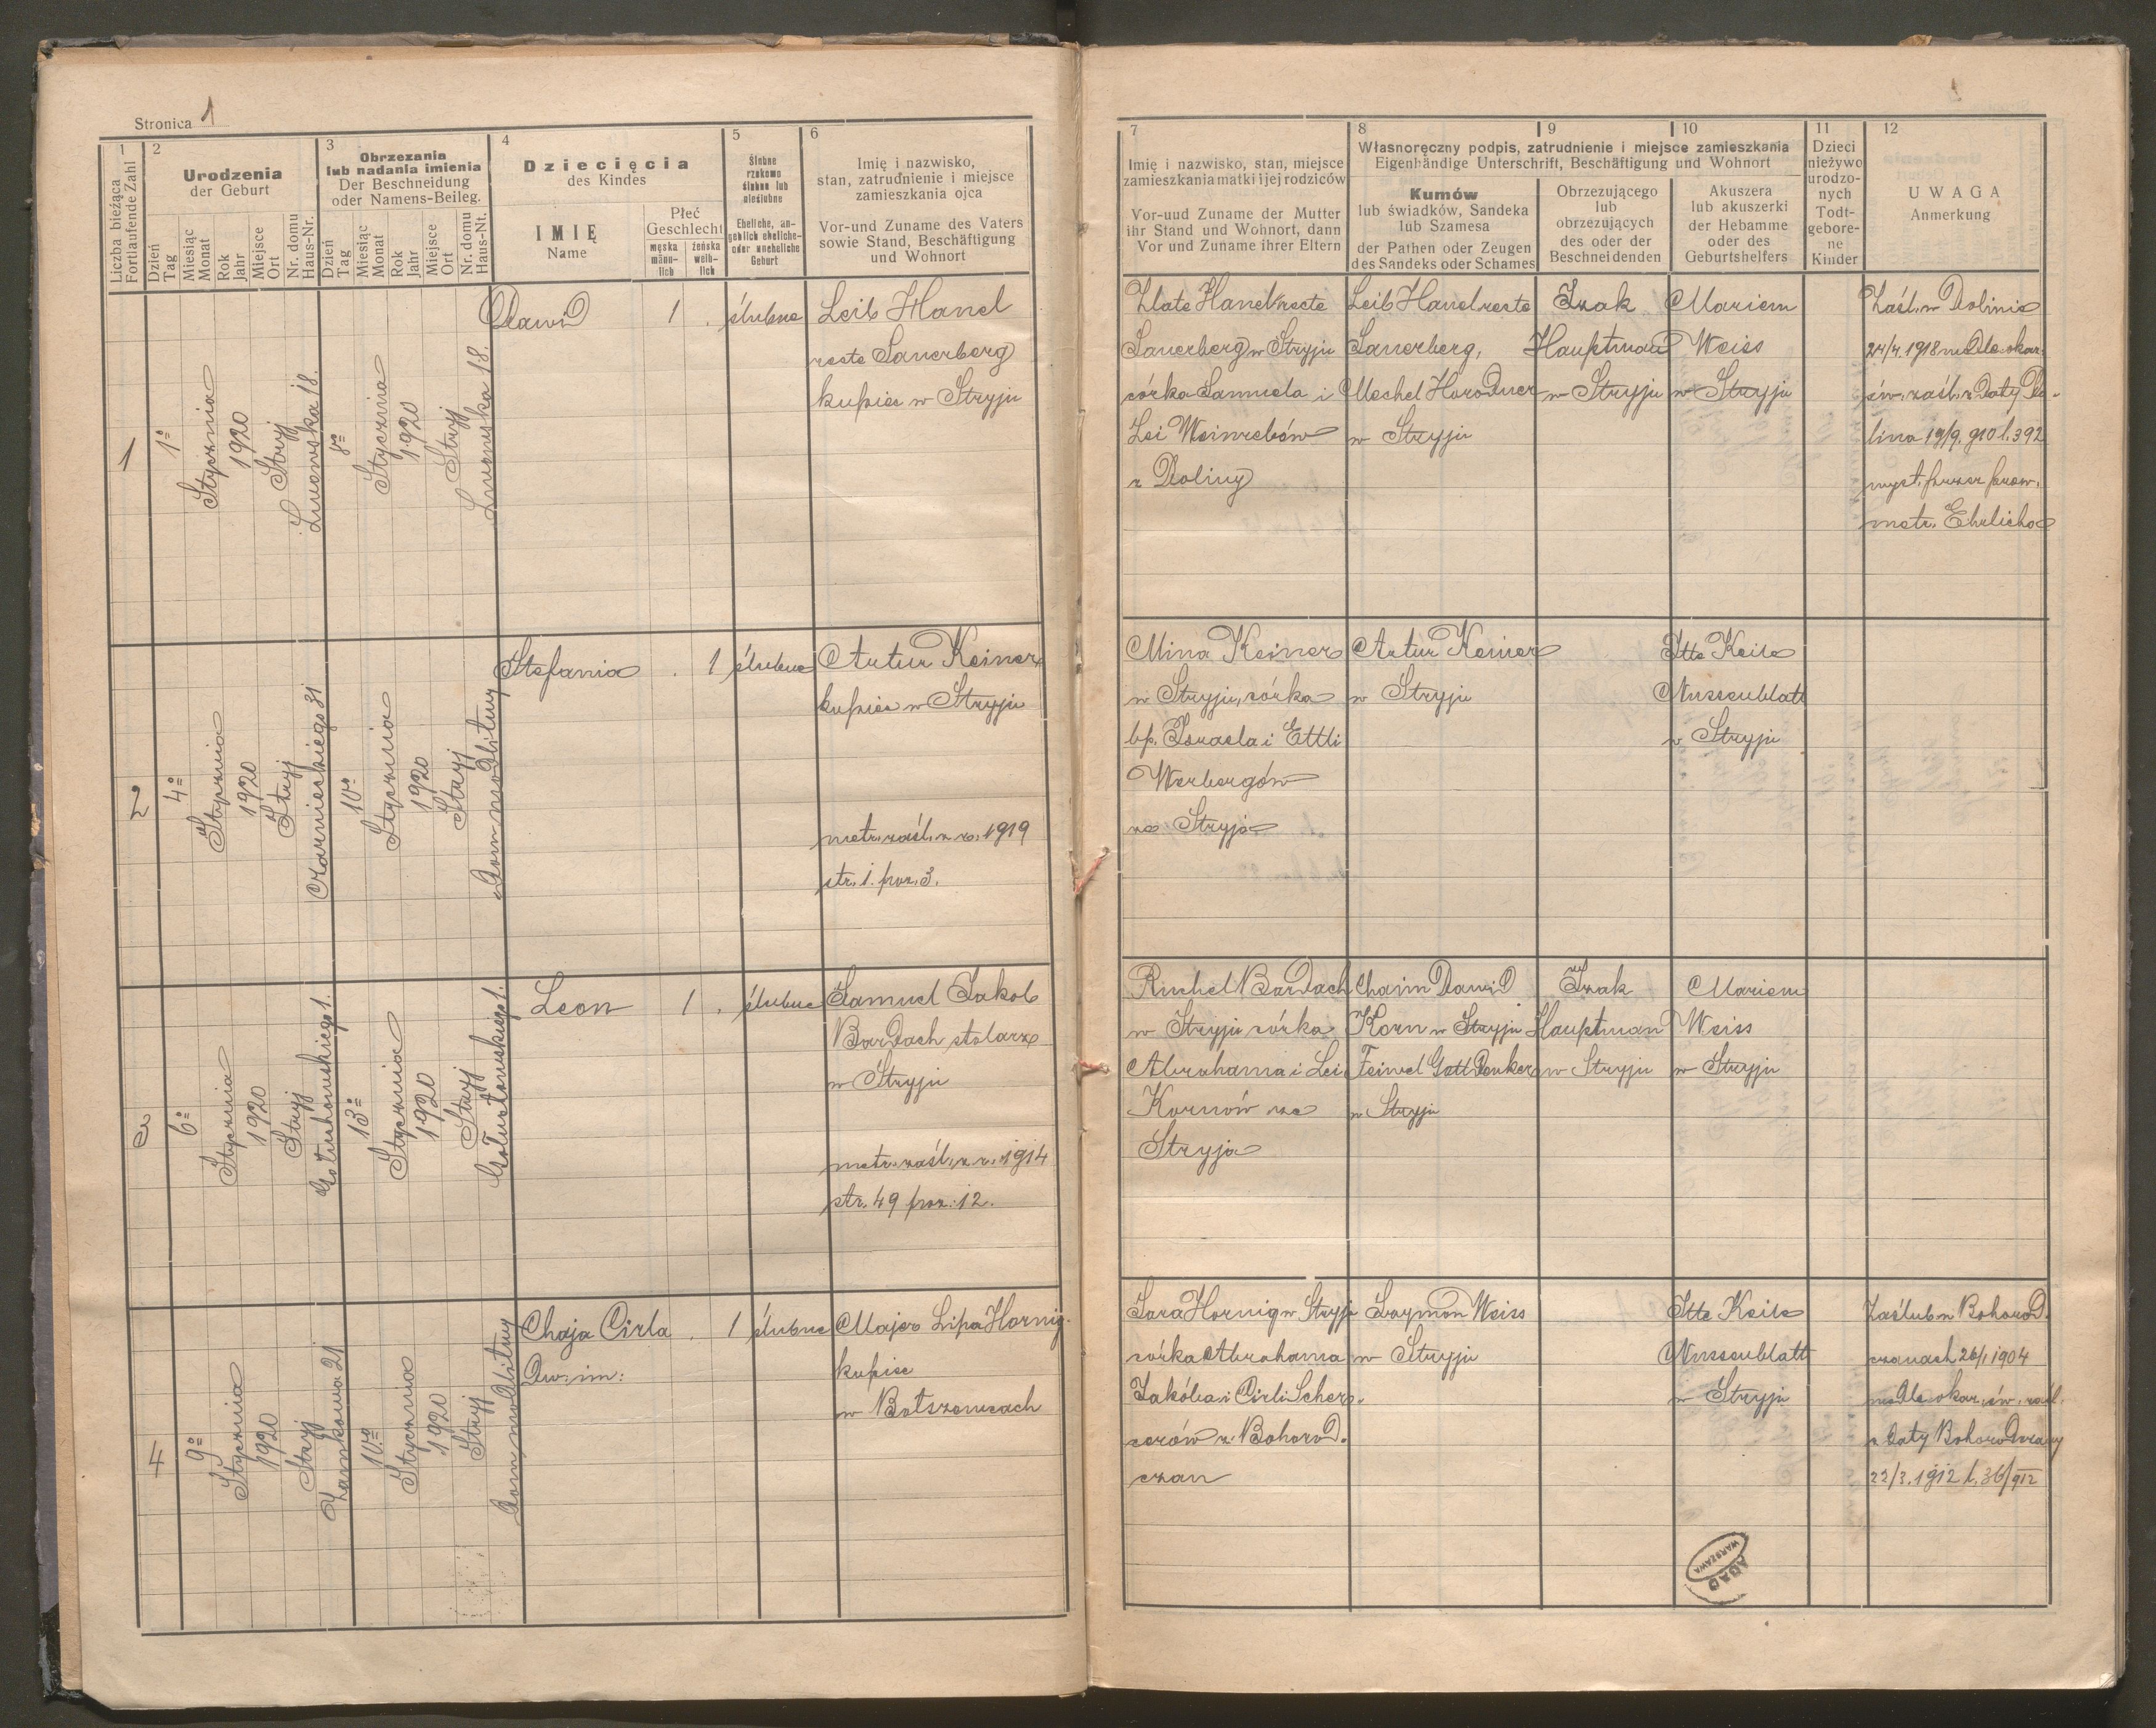 Stronica 1
1
Liczba bieżąca
Fortlaufende Zahl
2
Urodzenia
der Geburt
Dzień
Tag
Miesiąc
Monat
Rok
Jahr
Miejsce
Ort
Nr. domu
Haus-Nr.
3
Obrzezania
lub nadania imienia
Der Beschneidung
oder Namens-Beileg.
Dzień
Tag
Miesiąc
Monat
Rok
Jahr
Miejsce
Ort
Nr. domu
Haus-Nt.
4
Dziecięcia
des Kindes
IMIĘ
Name
Płeć
Geschlecht
męska
männ-
lich
żeńska
weib-
lich
5
Ślubne
rzekomo
ślubne lub
nieślubne
Eheliche, an-
geblich eheliche-
oder uneheliche
Geburt
6
Imię i nazwisko,
stan, zatrudnienie i miejsce
zamieszkania ojca
Vor-und Zuname des Vaters
sowie Stand, Beschäftigung
und Wohnort
7
Imię i nazwisko, stan, miejsce
zamieszkania matki i jej rodziców
Vor-uud Zuname der Mutter
ihr Stand und Wohnort, dann
Vor und Zuname ihrer Eltern
8
9
10
Własnoręczny podpis, zatrudnienie i miejsce zamieszkania
Eigenhändige Unterschrift, Beschäftigung und Wohnort
Kumów
lub świadków, Sandeka
lub Szamesa
der Pathen oder Zeugen
des Sandeks oder Schames
Obrzezującego
lub
obrzezujących
des oder der
Beschneidenden
Akuszera
lub akuszerki
der Hebamme
oder des
Geburtshelfers
11
Dzieci
nieżywo
urodzo-
nych
Todt-
gebore-
ne
Kinder
12
UWAGA
Anmerkung
1
1º
Stycznia
1920
Stryj
Lwowska 18.
8º
Stycznia
1920
Stryj
Lwowska 18.
Dawid
1 .
ślubne
Leib Hanel
recte Sauerberg
kupiec w Stryju
Zlate Hanel recte
Sauerberg w Stryju
córka Samuela i
Lei Weinrebów
z Doliny
Leib Hanel recte
Sauerberg,
Mechel Horodner
w Stryju
Izak
Hauptman
w Stryju
Mariem
Weiss
w Stryju
Zaśl. w Dolinie
1918 wedle okaz.
św. zaśl. z Daty Do-
lina 19/9. 910 l. 392
wyst. przez prow.
metr. Ehrlicha
2
4º
Stycznia
1920
Stryj
Czarnieckiego 31
10º
Stycznia
1920
Stryj
Dom modlitwy
Stefania
. 1
ślubne
Artur Keiner
kupiec w Stryju
metr. zaśl. z r. 1919
str. 1. poz. 3.
Mina Keiner
w Stryju, córka
bp. Israela i Ettli
Werbergów
ze Stryja
Artur Keiner
w Stryju
Itte Keile
Nussenblatt
w Stryju
3
6º
Stycznia
1920
Stryj
Gołuchowskiego 1.
13º
Stycznia
1920
Stryj
Gołuchowskiego 1.
Leon
1 .
ślubne
Samuel Jakob
Bardach stolarz
w Stryju
metr. zaśl. z r. 1914
str. 49 poz. 12.
Ruchel Bardach
w Stryju córka
Abrahama i Lei
Kornów ze
Stryja
Chaim Dawid
Korn w Stryju
Feiwel Gottdenker
w Stryju
Izak
Hauptman
w Stryju
Mariem
Weiss
w Stryju
4
9º
Stycznia
1920
Stryj
Zamkowa 21
10º
Stycznia
1920
Stryj
Dom modlitwy
Chaja Cirla
Dw. im:
. 1
ślubne
Majer Lipa Hornig
kupiec
w Botszowcach
Sara Hornig w Stryju
córka Abrahama
Jakóba i Cirli Scher-
zerów z Bohorod-
czan
Szymon Weiss
w Stryju
Itte Keile
Nussenblatt
w Stryju
Zaślub w Bohorod-
czanach 26/1 1904
wedle okaz. św. zaśl.
z Daty Bohorodczany
22/3. 1912 l. 36/912
AGAD
WARSZAWA